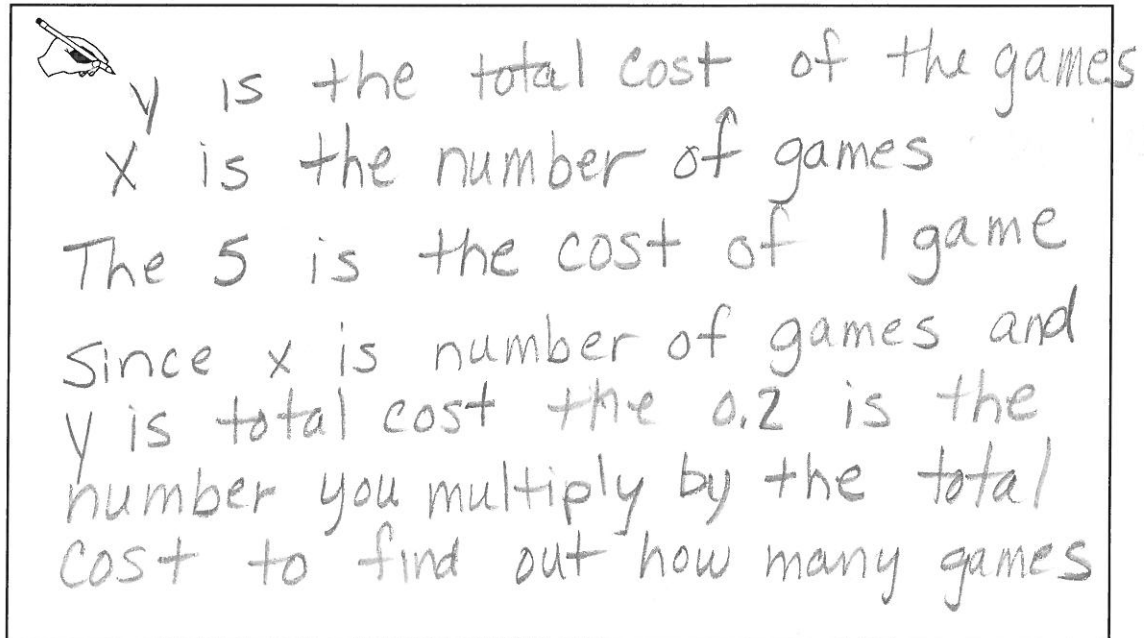 y is the total cost of the games
x is the number of games
The 5 is the cost of 1 game
Since x is number of games and
y is total cost the 0.2 is the
number you multiply by the total
cost to find out how many games